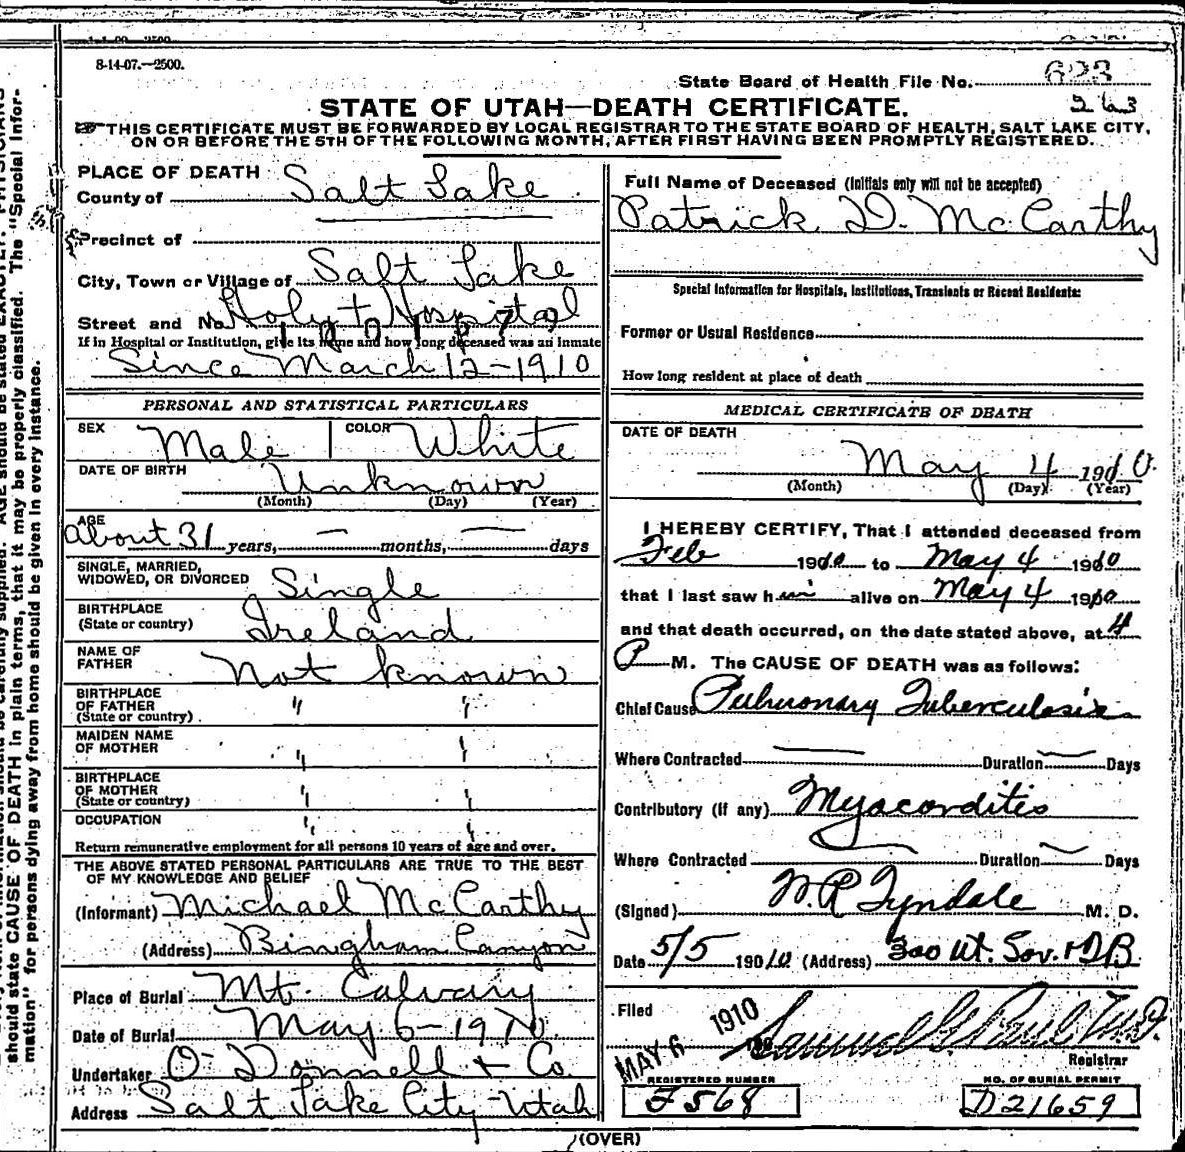 8-14-07.—2500.
State Board of Health File No. 623
263
STATE OF UTAH—DEATH CERTIFICATE.
THIS CERTIFICATE MUST BE FORWARDED BY LOCAL REGISTRAR TO THE STATE BOARD OF HEALTH, SALT LAKE CITY,
ON OR BEFORE THE 5TH OF THE FOLLOWING MONTH, AFTER FIRST HAVING BEEN PROMPTLY REGISTERED.
PLACE OF DEATH
County of Salt Lake
Precinct of
City, Town or Village of Salt Lake
Street and No. Holy + Hospital
If in Hospital or Institution, give its name and how long deceased was an inmate
Since March 12-1910
PERSONAL AND STATISTICAL PARTICULARS
SEX Male COLOR White
DATE OF BIRTH Unknown
(Month) (Day) (Year)
AGE
About 31 years, — months, — days
SINGLE, MARRIED,
WIDOWED, OR DIVORCED Single
BIRTHPLACE
(State or country) Ireland
NAME OF
FATHER Not known
BIRTHPLACE
OF FATHER " "
(State or country)
MAIDEN NAME
OF MOTHER " "
BIRTHPLACE
OF MOTHER " "
(State or country)
OCCUPATION " "
Return remunerative employment for all persons 10 years of age and over.
THE ABOVE STATED PERSONAL PARTICULARS ARE TRUE TO THE BEST
OF MY KNOWLEDGE AND BELIEF
(Informant) Michael McCarthy
(Address) Bingham Canyon
Place of Burial Mt. Calvary
Date of Burial May 6-1910
Undertaker O'Donnell & Co.
Address Salt Lake City Utah
Full Name of Deceased (Initials only will not be accepted)
Patrick D. McCarthy
Special Information for Hospitals, Institutions, Transients or Recent Residents:
Former or Usual Residence
How long resident at place of death
MEDICAL CERTIFICATE OF DEATH
DATE OF DEATH
May 4 1910.
(Month) (Day) (Year)
I HEREBY CERTIFY, That I attended deceased from
Feb 1910 to May 4 1910
that I last saw him alive on May 4 1910
and that death occurred, on the date stated above, at 4
P M. The CAUSE OF DEATH was as follows:
Chief Cause Pulmonary Tuberculosis
Where Contracted — Duration — Days
Contributory (if any) Myacorditis
Where Contracted Duration — Days
(Signed) W.R. Tyndale M. D.
Date 5/5 1910 (Address) 300 Ut. Sav. & T. B.
Filed MAY 6 1910
Samuel G. Paul M.D.
Registrar
REGISTERED NUMBER
F568
NO. OF BURIAL PERMIT
D21659
(OVER)
should state CAUSE OF DEATH in plain terms, that it may be properly classified. The "Special Infor-
mation" for persons dying away from home should be given in every instance.